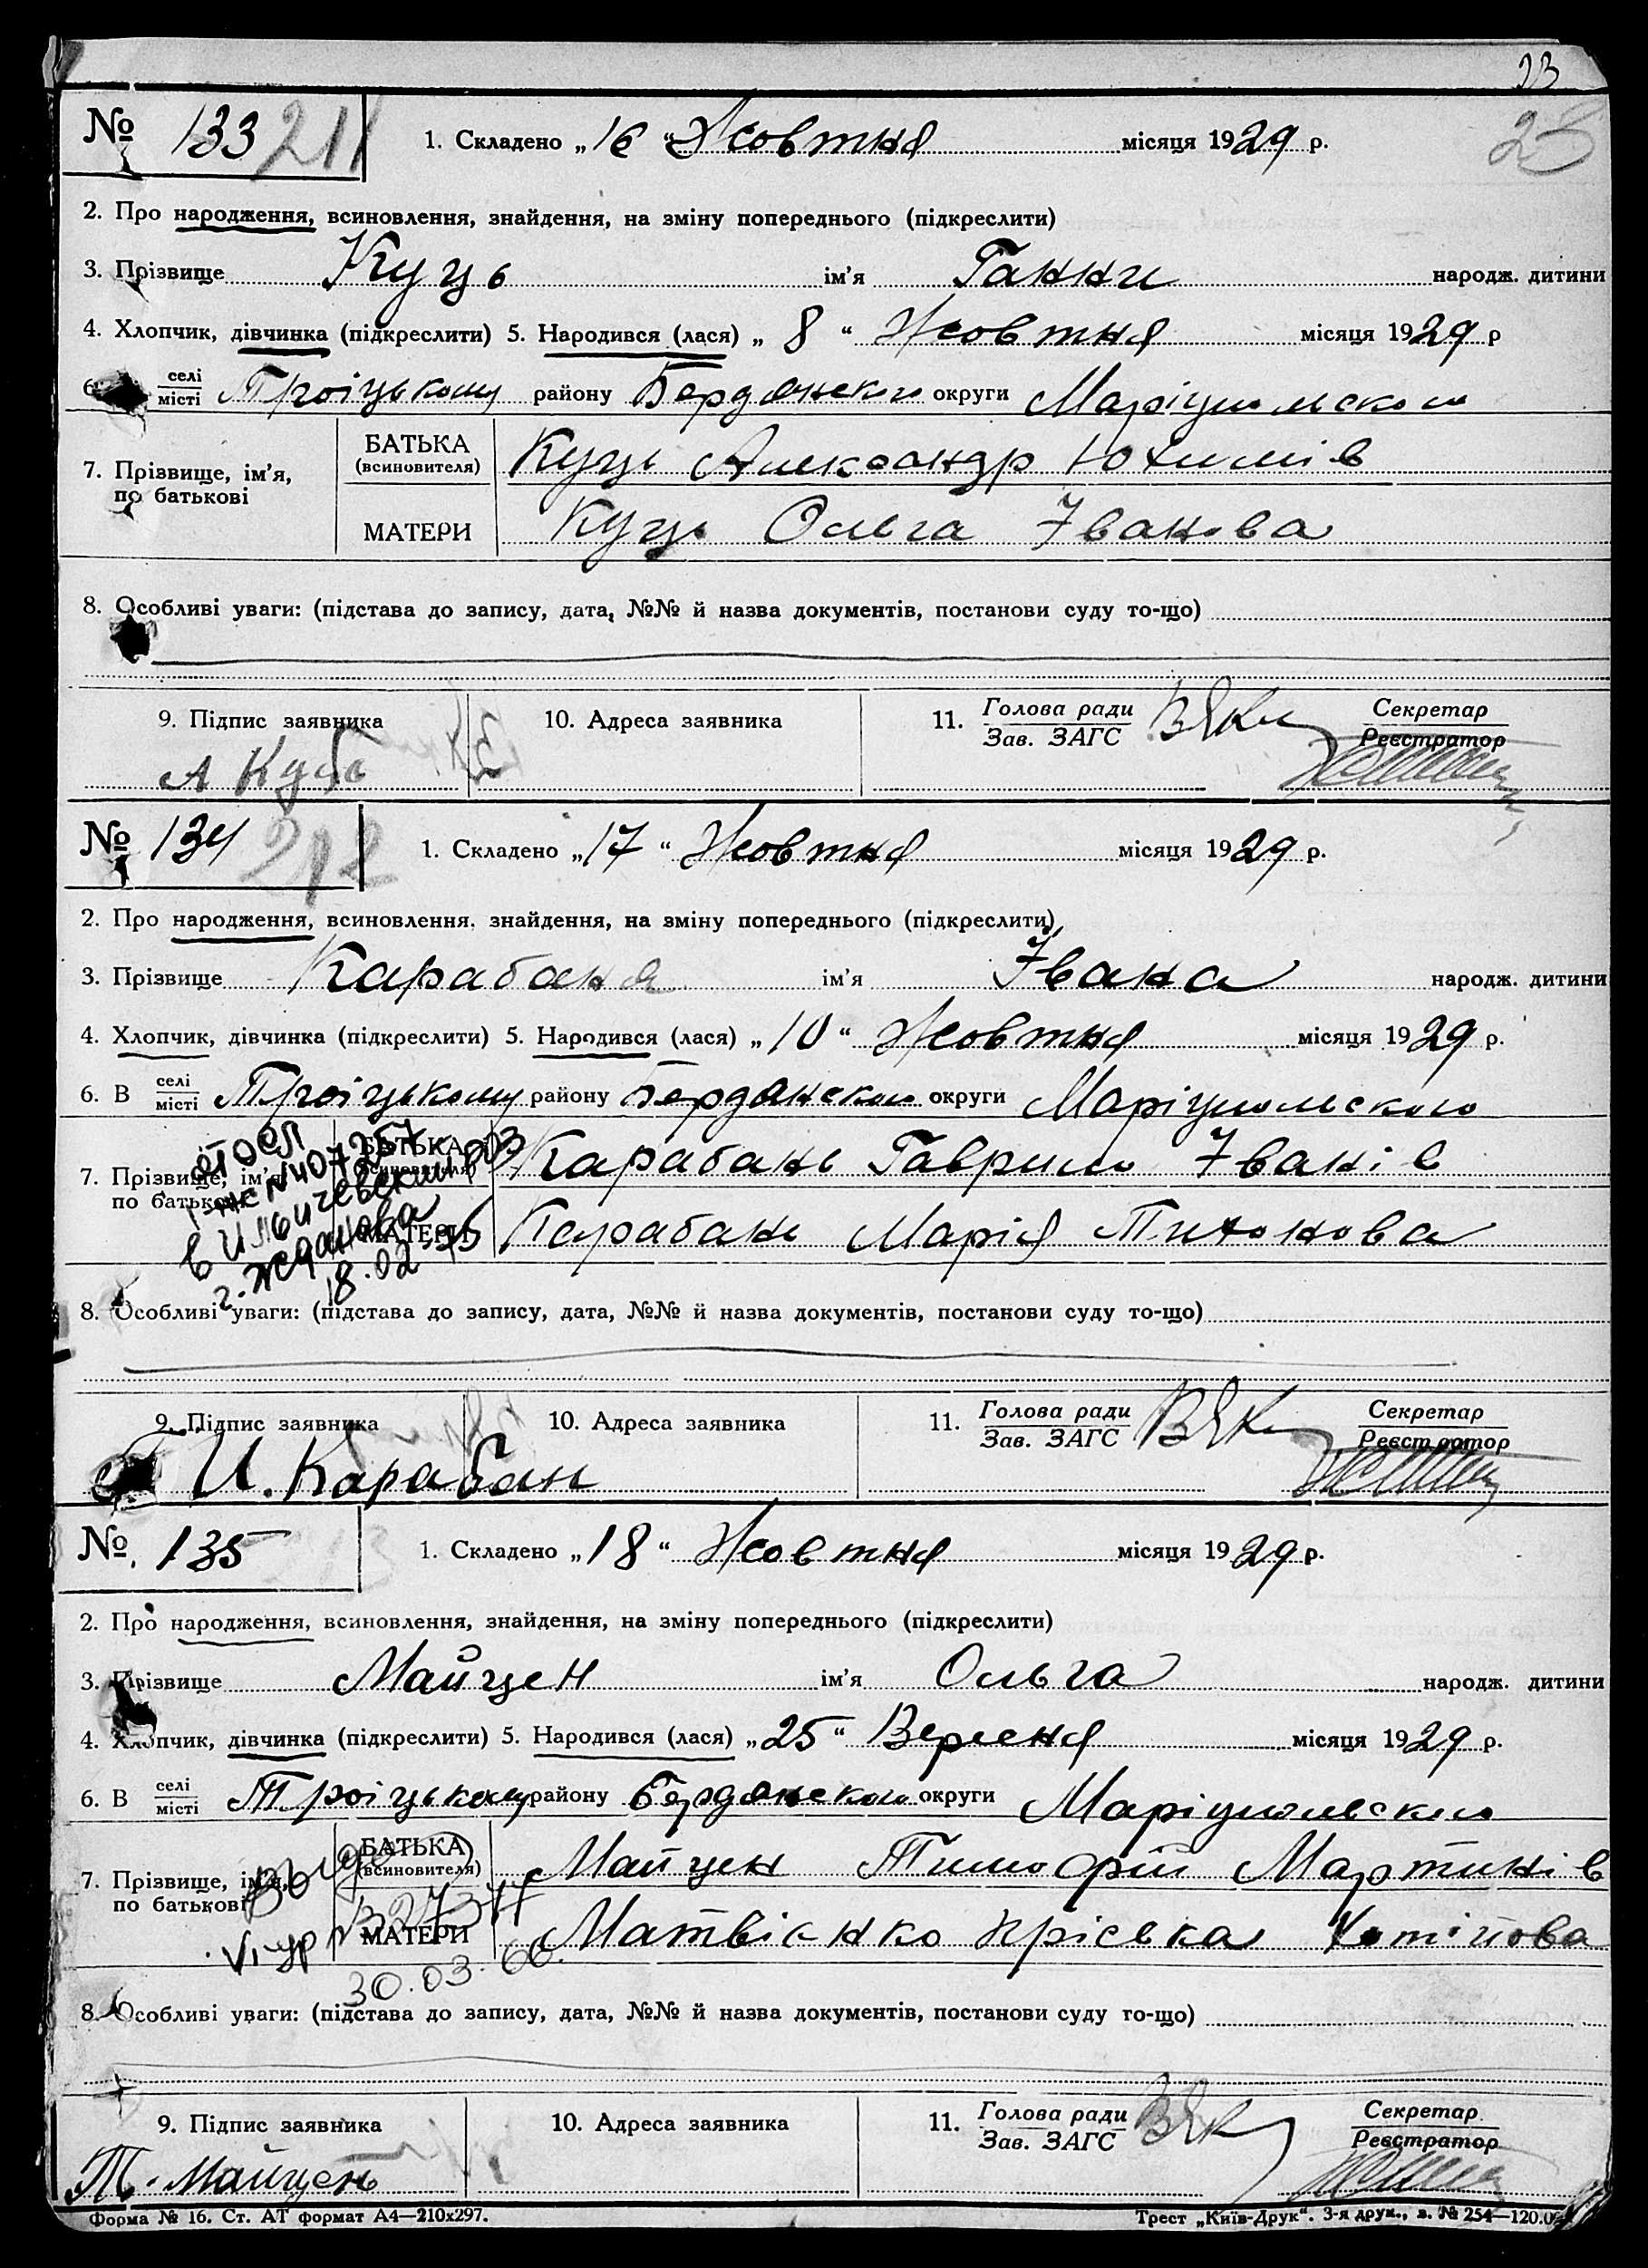 23
№ 133 211
1. Складено „16“ Жовтня місяця 1929 р.
28
2. Про народження, всиновлення, знайдення, на зміну попереднього (підкреслити)
3. Прізвище Куць ім’я Ганни народж. дитини
4. Хлопчик, дівчинка (підкреслити) 5. Народився (лася) „8“ Жовтня місяця 1929 р
6. селі/місті Троіцькому району Бердянского округи Маріупольского
7. Прізвище, ім’я, по батькові
БАТЬКА (всиновителя) Куць Александр Юхимів
МАТЕРИ Куць Ольга Іванова
8. Особливі уваги: (підстава до запису, дата, №№ й назва документів, постанови суду то-що)
9. Підпис заявника 10. Адреса заявника 11. Голова ради/Зав. ЗАГС Секретар/Реєстратор
А Куць
№ 134 212
1. Складено „17“ Жовтня місяця 1929 р.
2. Про народження, всиновлення, знайдення, на зміну попереднього (підкреслити)
3. Прізвище Карабаня ім’я Івана народж. дитини
4. Хлопчик, дівчинка (підкреслити) 5. Народився (лася) „10“ Жовтня місяця 1929 р.
6. В селі/місті Троіцькому району Бердянского округи Маріупольского
7. Прізвище, ім’я, по батькові
БАТЬКА (всиновителя) Карабань Гаврило Іванів
МАТЕРИ Карабань Марія Тихонова
№407257
в Ильичевский
г. Жданова
18.02
8. Особливі уваги: (підстава до запису, дата, №№ й назва документів, постанови суду то-що)
9. Підпис заявника 10. Адреса заявника 11. Голова ради/Зав. ЗАГС Секретар/Реєстратор
И. Карабан
№ 135 213
1. Складено „18“ Жовтня місяця 1929 р.
2. Про народження, всиновлення, знайдення, на зміну попереднього (підкреслити)
3. Прізвище Майцен ім’я Ольга народж. дитини
4. Хлопчик, дівчинка (підкреслити) 5. Народився (лася) „25“ Вересня місяця 1929 р.
6. В селі/місті Троіцькому району Бердянского округи Маріупольского
7. Прізвище, ім’я, по батькові
БАТЬКА (всиновителя) Майцен Тимофій Мартинів
МАТЕРИ Матвієнко Пріська
30.03.60.
8. Особливі уваги: (підстава до запису, дата, №№ й назва документів, постанови суду то-що)
9. Підпис заявника 10. Адреса заявника 11. Голова ради/Зав. ЗАГС Секретар/Реєстратор
Т. Майцен
Форма № 16. Ст. АТ формат А4—210х297. Трест „Київ-Друк“. 3-я друк., з. № 254—120.0